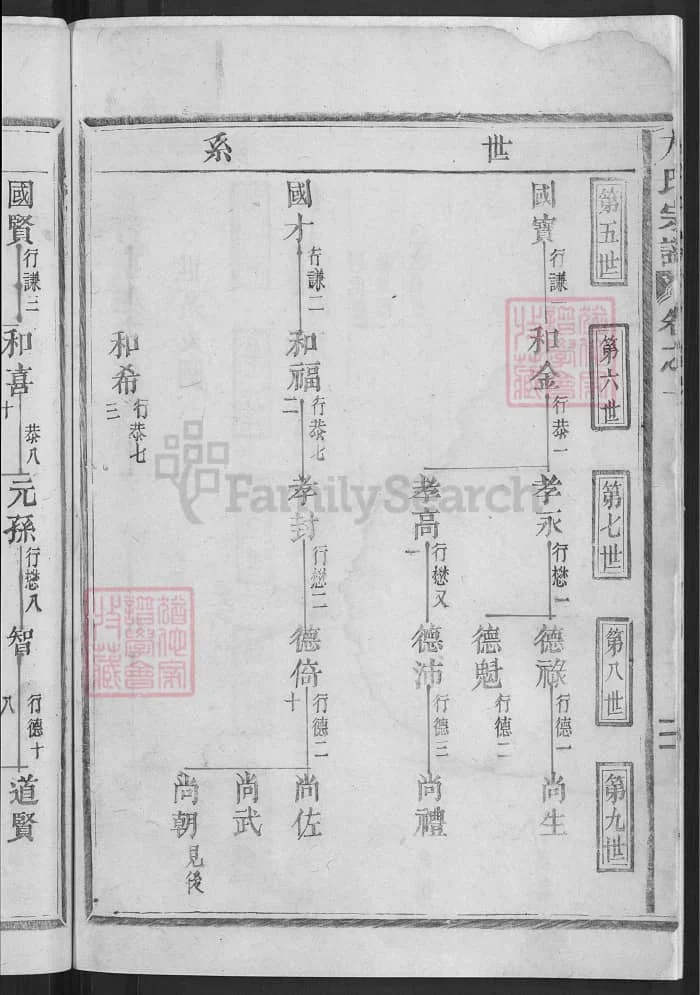 氏宗譜 卷之一
二
世系
第五世
第六世
第七世
第八世
第九世
國寶 行謙一
和金 行恭一
孝永 行懋一
德祿 行德一
尚生
德魁 行德二
孝高 行懋又一
德沛 行德三
尚禮
國才 行謙二
和福 行恭七二
孝封 行懋二
德倚 行德二十
尚佐
尚武
尚朝 見後
和希 行恭七三
國賢 行謙三
和喜 恭八十
元孫 行懋八
智 行德十八
道賢
FamilySearch